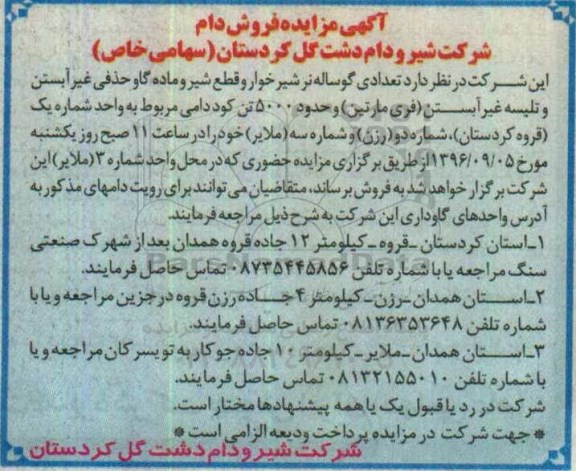 آگهی مزایده فروش دام
شرکت شیر و دام دشت گل کردستان (سهامی خاص)
این شرکت در نظر دارد تعدادی گوساله نر شیر خوار و قطع شیر و ماده گاو حذفی غیر آبستن
و تلیسه غیر آبستن (فری مارتین) و حدود ۵۰۰۰ تن کود دامی مربوط به واحد شماره یک
(قروه کردستان)، شماره دو (رزن) و شماره سه (ملایر) خود را در ساعت ۱۱ صبح روز یکشنبه
مورخ ۱۳۹۶/۰۹/۰۵ از طریق برگزاری مزایده حضوری که در محل واحد شماره ۳ (ملایر) این
شرکت برگزار خواهد شد به فروش برساند، متقاضیان می توانند برای رویت دامهای مذکور به
آدرس واحدهای گاوداری این شرکت به شرح ذیل مراجعه فرمایند.
۱ـ استان کردستان ـ قروه ـ کیلومتر ۱۲ جاده قروه همدان بعد از شهرک صنعتی
سنگ مراجعه یا با شماره تلفن ۰۸۷۳۵۴۴۵۸۵۶ تماس حاصل فرمایند.
۲ـ استان همدان ـ رزن ـ کیلومتر ۴ جاده رزن قروه درجزین مراجعه و یا با
شماره تلفن ۰۸۱۳۶۳۵۳۶۴۸ تماس حاصل فرمایند.
۳ـ استان همدان ـ ملایر ـ کیلومتر ۱۰ جاده جوکار به تویسرکان مراجعه و یا
با شماره تلفن ۰۸۱۳۲۱۵۵۰۱۰ تماس حاصل فرمایند.
شرکت در رد یا قبول یک یا همه پیشنهادها مختار است.
* جهت شرکت در مزایده پرداخت ودیعه الزامی است *
شرکت شیر و دام دشت گل کردستان